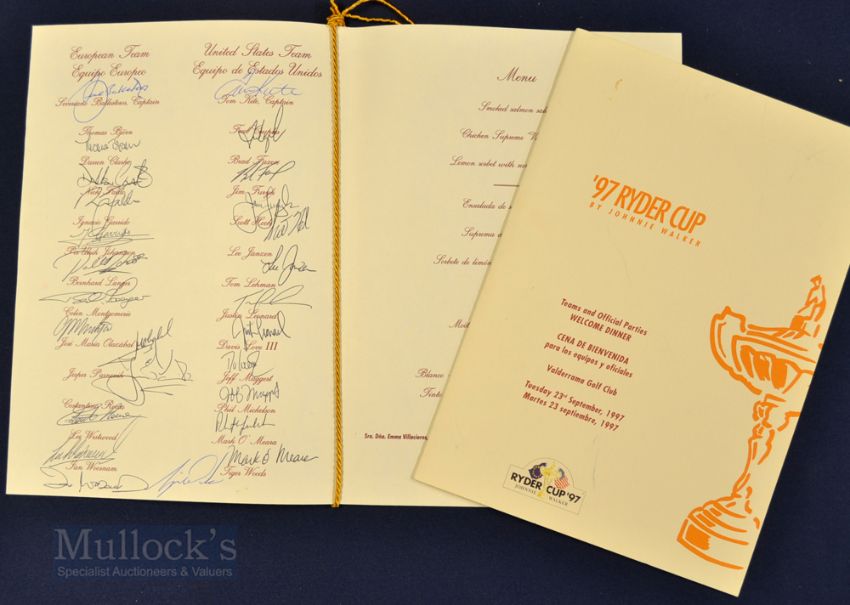 European Team
Equipo Europeo
Severiano Ballesteros, Captain
Thomas Björn
Darren Clarke
Nick Faldo
Ignacio Garrido
Per-Ulrik Johansson
Bernhard Langer
Colin Montgomerie
José Maria Olazabal
Jesper Parnevik
Costantino Rocca
Lee Westwood
Ian Woosnam
United States Team
Equipo de Estados Unidos
Tom Kite, Captain
Fred Couples
Brad Faxon
Jim Furyk
Scott Hoch
Lee Janzen
Tom Lehman
Justin Leonard
Davis Love III
Jeff Maggert
Phil Mickelson
Mark O'Meara
Tiger Woods
Mark O'Meara
Menu
Smoked salmon
Chicken Supreme
Lemon sorbet with
Ensalada de
Suprema
Sorbete de limón
Blanco
Tinto
Sra. Dña. Emma Villacieros,
'97 RYDER CUP
BY JOHNNIE WALKER
Teams and Official Parties
WELCOME DINNER
CENA DE BIENVENIDA
para los equipos y oficiales
Valderrama Golf Club
Tuesday 23rd September, 1997
Martes 23 septiembre, 1997
RYDER CUP '97
JOHNNIE WALKER
Mullock's
Specialist Auctioneers & Valuers